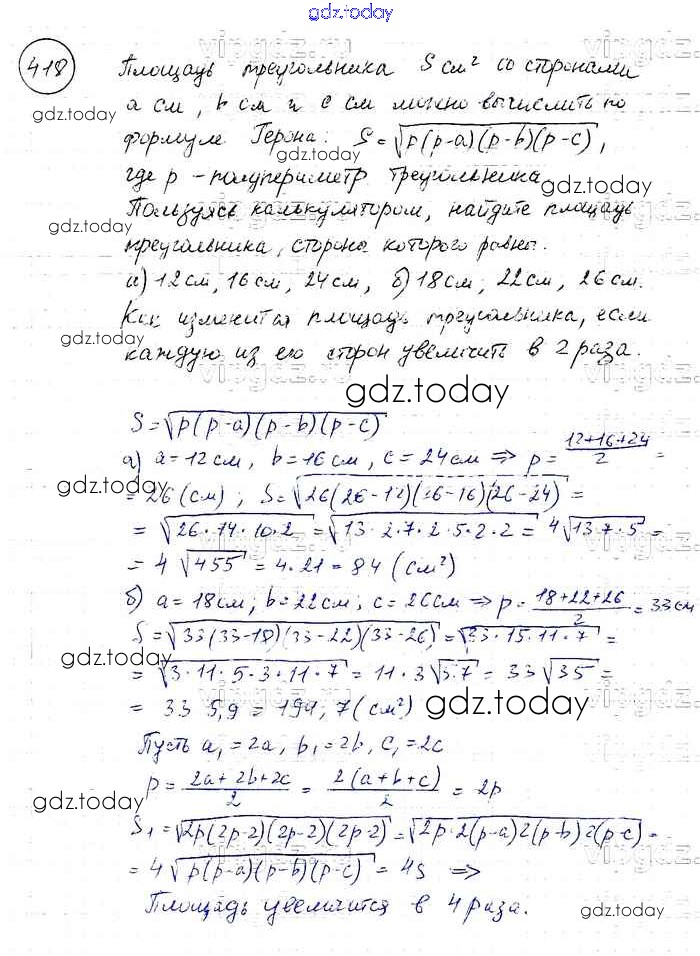 gdz.today
418
Площадь треугольника S см² со сторонами
a см, b см и c см можно вычислить по
формуле Герона: S=√p(p-a)(p-b)(p-c),
где p - полупериметр треугольника
Пользуясь калькулятором, найдите площадь
треугольника, стороны которого равны:
а) 12 см, 16 см, 24 см, б) 18 см, 22 см, 26 см.
Как изменится площадь треугольника, если
каждую из его сторон увеличить в 2 раза.
S=√p(p-a)(p-b)(p-c)
а) a=12 см, b=16 см, c=24 см ⇒ p= (12+16+24)/2 =
= 26 (см); S=√26(26-12)(26-16)(26-24) =
= √26·14·10·2 = √13·2·7·2·5·2·2 = 4√13·7·5 =
= 4 √455 = 4·21 = 84 (см²)
б) a=18 см; b=22 см; c=26 см ⇒ p= (18+22+26)/2 = 33 см
S=√33(33-18)(33-22)(33-26) = √33·15·11·7 =
= √3·11·5·3·11·7 = 11·3√5·7 = 33√35 =
= 33 5,9 = 194,7 (см²)
Пусть a₁=2a, b₁=2b, c₁=2c
p= (2a+2b+2c)/2 = 2(a+b+c)/2 = 2p
S₁=√2p(2p-2)(2p-2)(2p-2) = √2p·2(p-a)2(p-b)2(p-c) =
= 4√p(p-a)(p-b)(p-c) = 4S ⇒
Площадь увеличится в 4 раза.
gdz.today
gdz.today
gdz.today
gdz.today
gdz.today
gdz.today
gdz.today
gdz.today
gdz.today
gdz.today
gdz.today
gdz.today